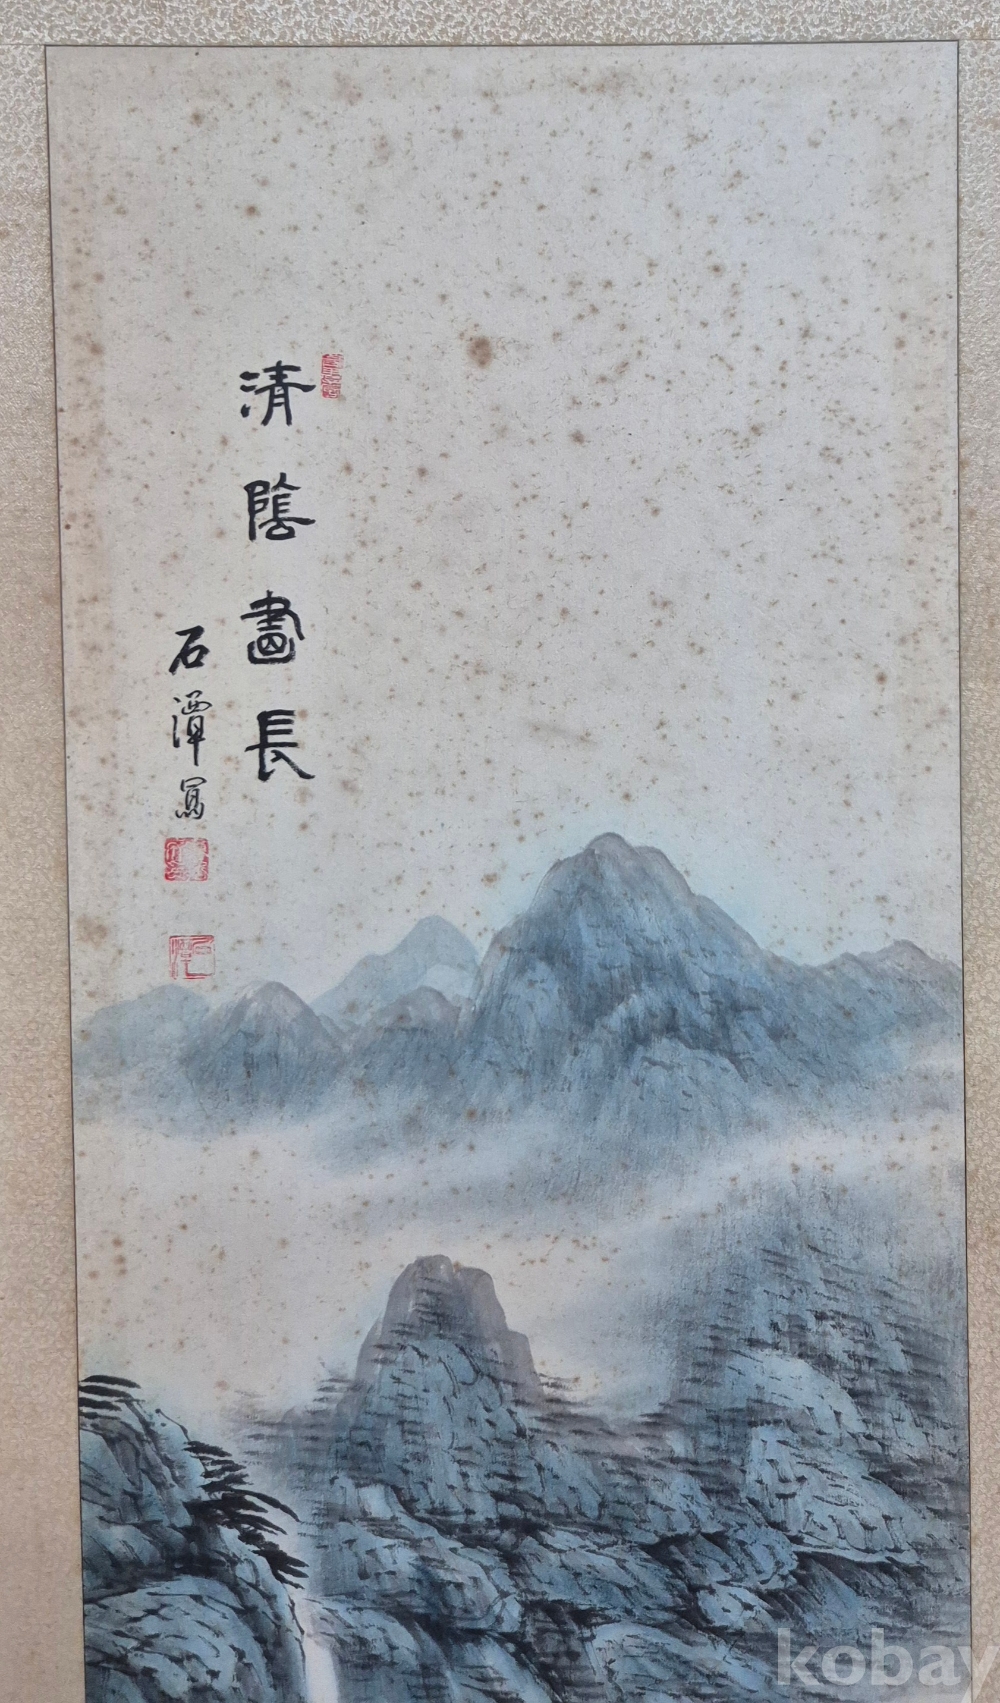 清陰晝長
石潭寫
石潭
kobay